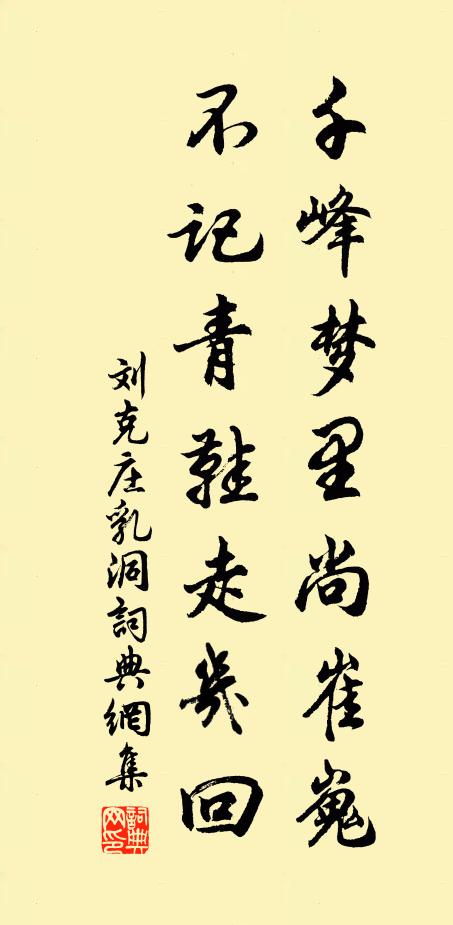 千峰梦里尚崔嵬
不记青鞋走几回
刘克庄乳洞詞典網集
詞典网印